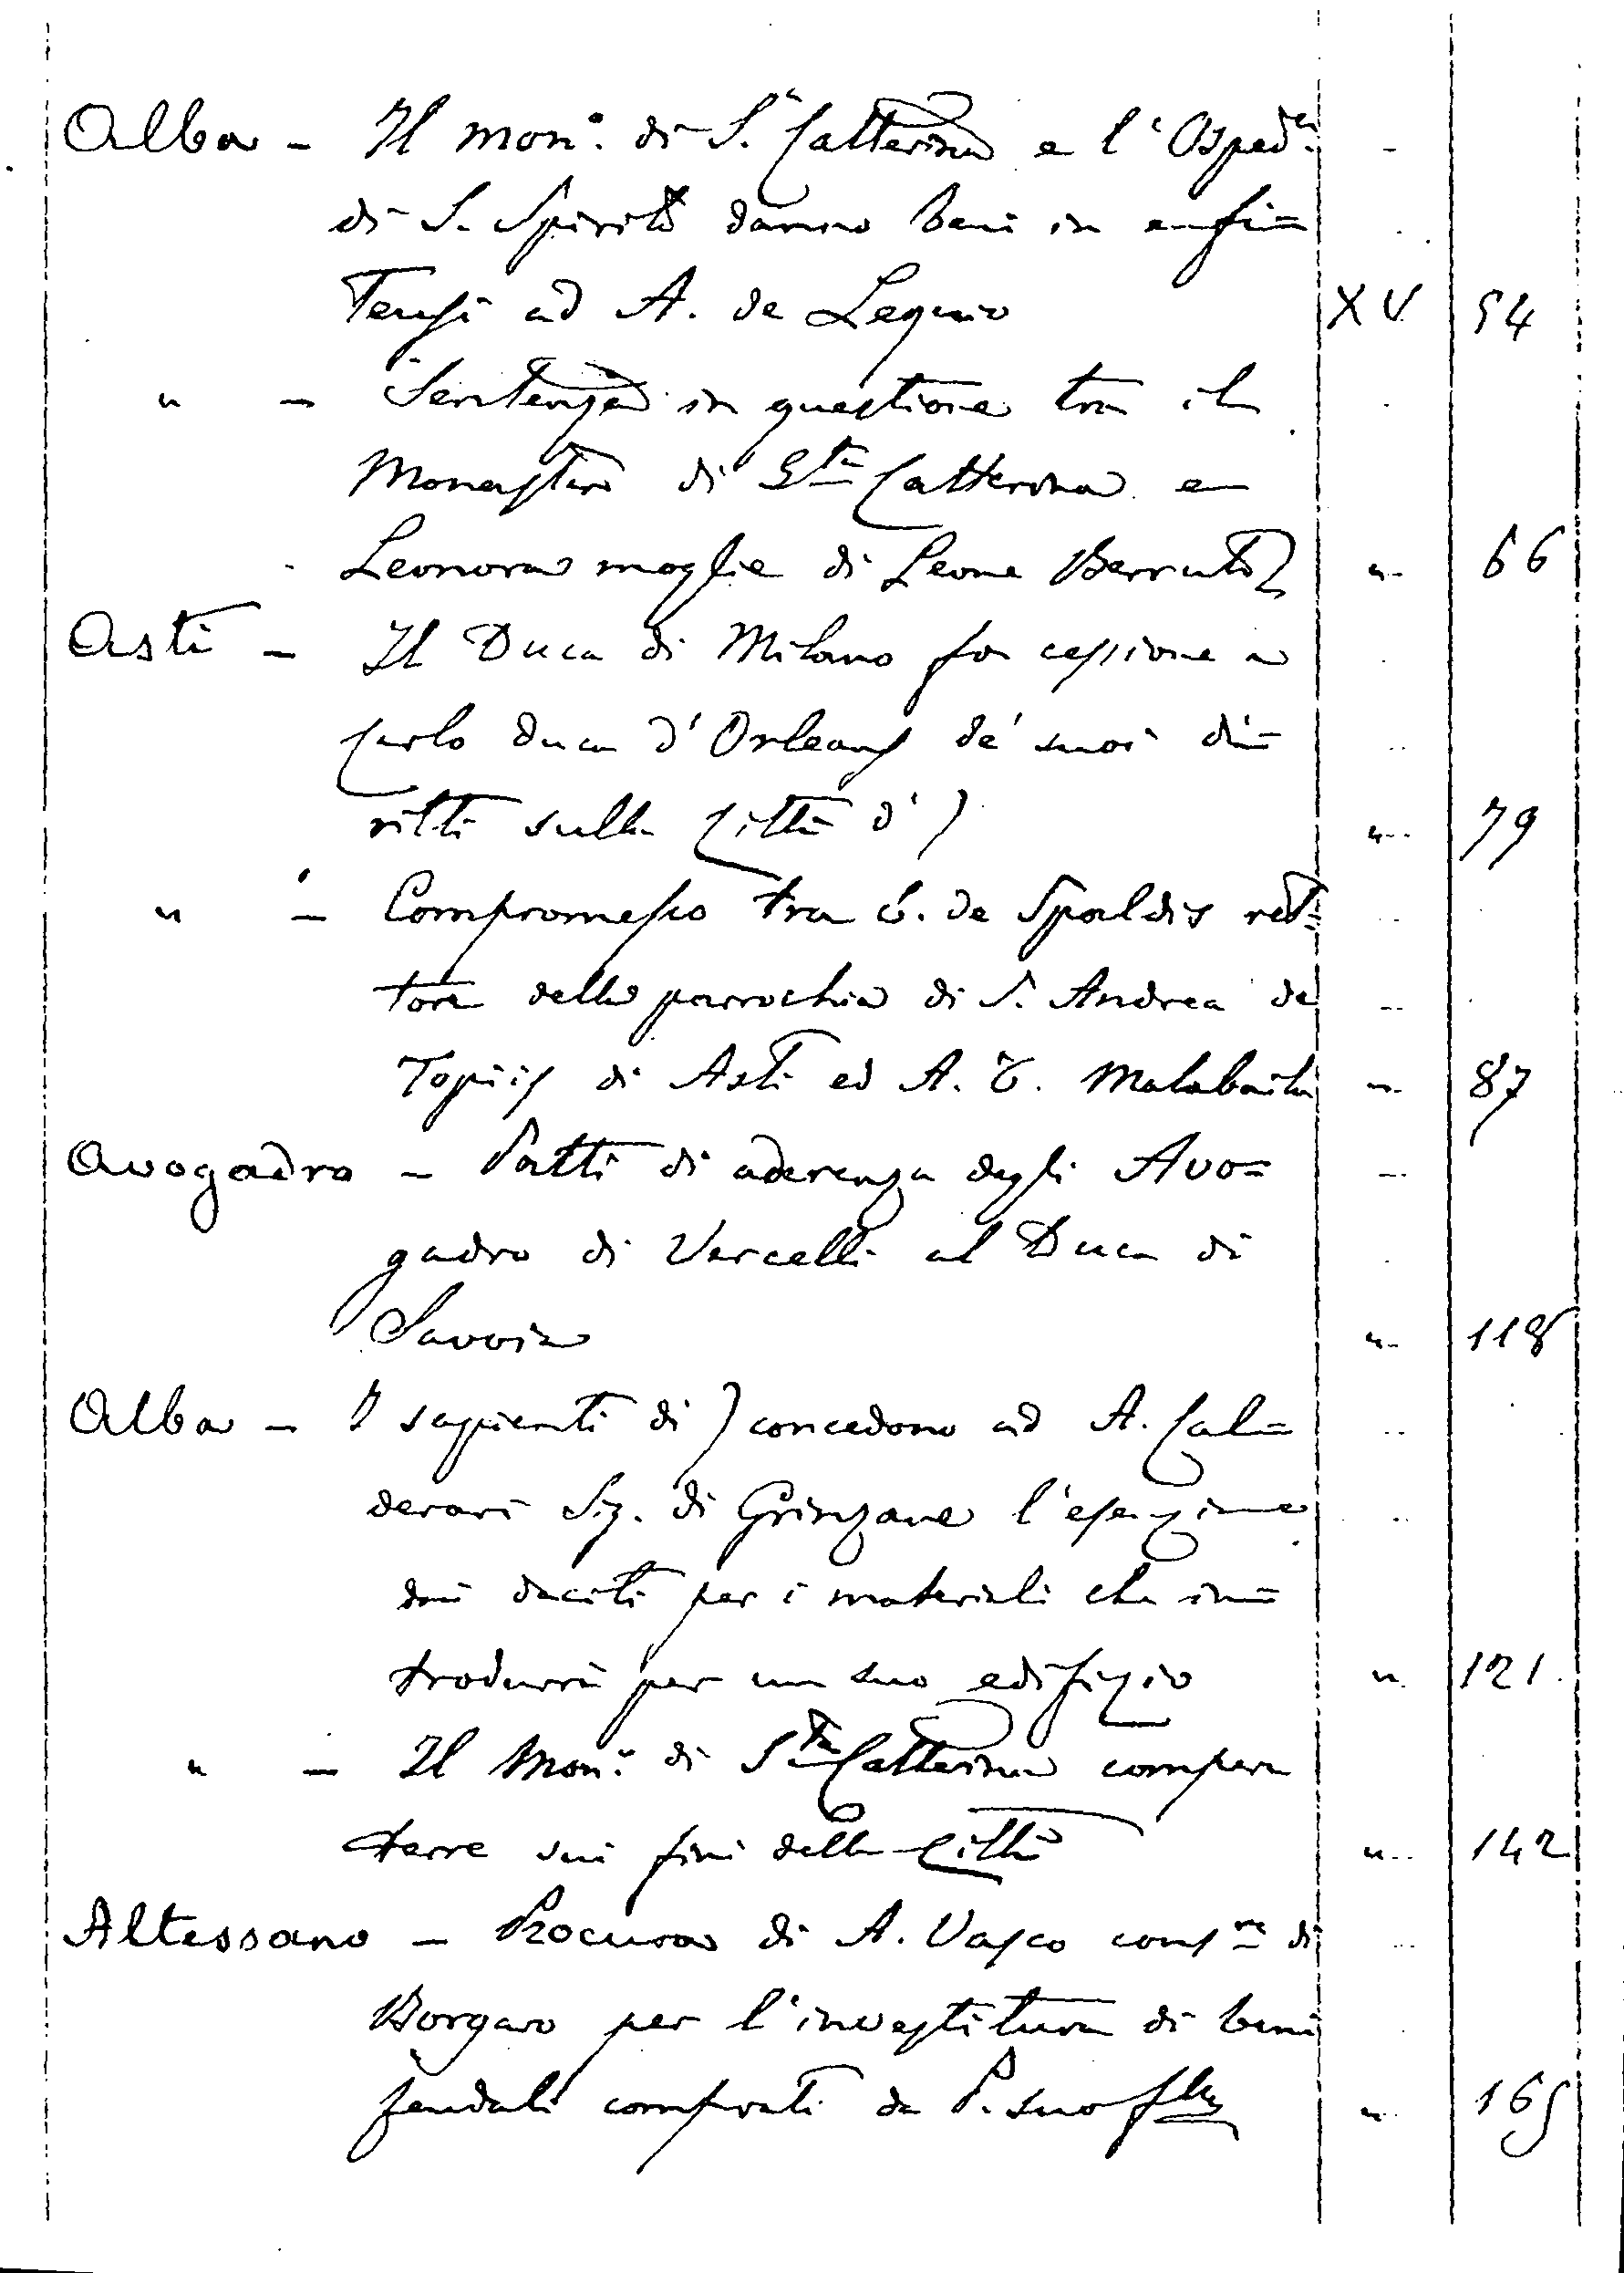 Alba - Il mon.º di S.ª Catterina e l'Osped.le
di S. Spirito danno beni in enfi=
teusi ad A. de Lequio XV 54
" - Sentenza in questione tra il
Monastero di S.ta Catterina e
Leonora moglie di Leone Berruto " 66
Asti - Il Duca di Milano fa cessione a
Carlo duca d'Orleans de' suoi di=
ritti sulla Città d' ) " 79
" - Compromesso tra G. de Spaldis ret=
tore della parrochia di S. Andrea de
Topiis di Asti ed A. G. Malabaila " 87
Avogadro - Patti di aderenza degli Avo=
gadro di Vercelli al Duca di
Savoia " 118
Alba - I sapienti di ) concedono ad A. Cal=
derari Sig. di Grinzane l'esenzione
dai daciti per i materiali che in=
trodurrà per un suo edifizio " 121
" - Il Mon.º di S.ta Catterina compera
terre sui fini della Città " 142
Altessano - Procura di A. Vasco cons.re di
Borgaro per l'investitura di beni
feudali comprati da P. suo f.llo " 165